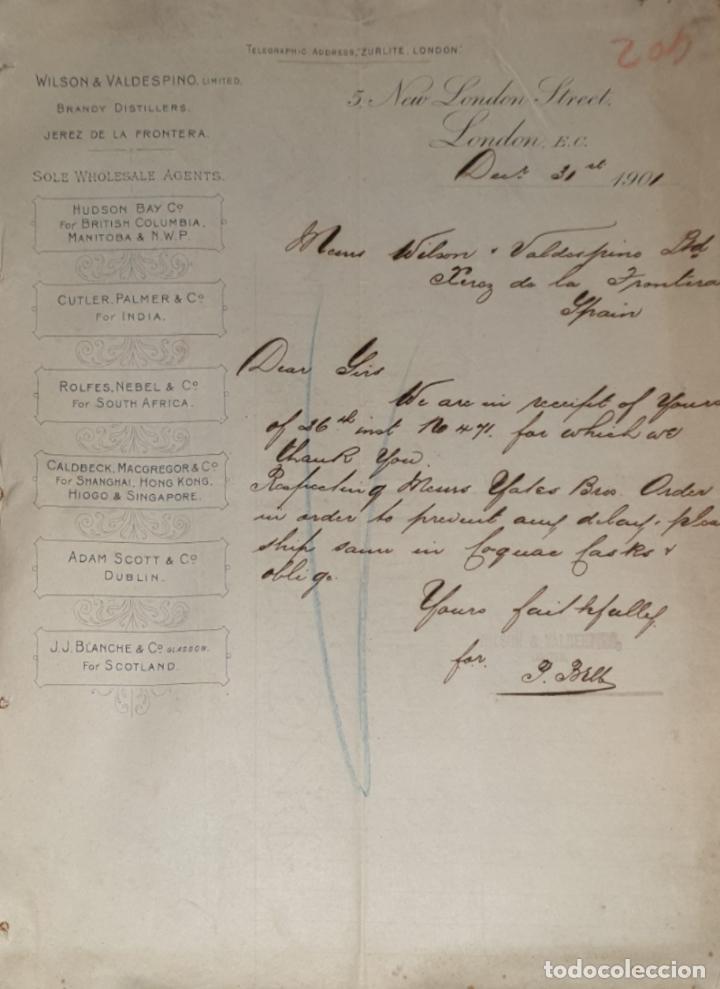 TELEGRAPHIC ADDRESS, "ZURLITE, LONDON."
WILSON & VALDESPINO, LIMITED.
BRANDY DISTILLERS.
JEREZ DE LA FRONTERA.
SOLE WHOLESALE AGENTS.
HUDSON BAY Co
FOR BRITISH COLUMBIA,
MANITOBA & N.W.P.
CUTLER, PALMER & Co
FOR INDIA.
ROLFES, NEBEL & Co
FOR SOUTH AFRICA.
CALDBECK, MACGREGOR & Co
FOR SHANGHAI, HONG KONG,
HIOGO & SINGAPORE.
ADAM SCOTT & Co
DUBLIN.
J.J. BLANCHE & Co GLASGOW.
FOR SCOTLAND.
5, New London Street,
London, E.C.
Decr 31st 1901
Messrs Wilson & Valdespino Ltd
Xerez de la Frontera
Spain
Dear Sirs
We are in receipt of Yours
of 26th inst No 471. for which we
thank You
Respecting Messrs Yates Bros. Order
in order to prevent any delay, pleas
ship same in Cognac Casks &
oblige
Yours faithfully
WILSON & VALDESPINO,
for
todocoleccion
todocoleccion.net